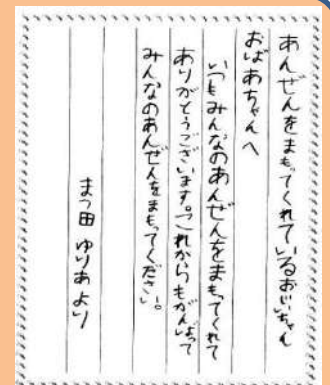 あんぜんをまもってくれているおじいちゃん
おばあちゃんへ
いつもみんなのあんぜんをまもってくれて
ありがとうございます。これからもがんばって
みんなのあんぜんをまもってください。
まつ田 ゆりあより